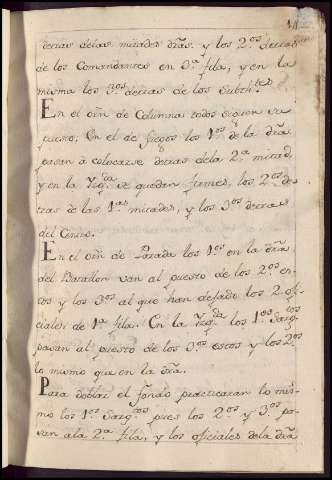 detras delas mitades dras. y los 2.os detras
de los Comandantes en 3.a fila, y en la
misma los 3.os detras de los Subthtes
En el orn de Columna todos siguen su
puesto, En el de fuegos los 1.os de la dra
pasan à colocarse detras dela 2.a mitad,
y en la Yzqda se quedan firmes, los 2.os de-
tras de las 1.as mitades, y los 3.os detras
del Centro.
En el orn de Parada los 1.os en la dra
del Batallon van al puesto de los 2.os en-
tos y los 3.os al que han dejado los 2. ofi-
ciales de 1.a fila. En la Yzqda los 1.os Sargtos
pasan al puesto de los 3.os estos y los 2.os
lo mismo que en la dra.
Para doblar el fondo practicaran lo mis-
mo los 1.os Sargtos pues los 2.os y 3.os pa-
san ala 2.a fila, y los oficiales dela dra